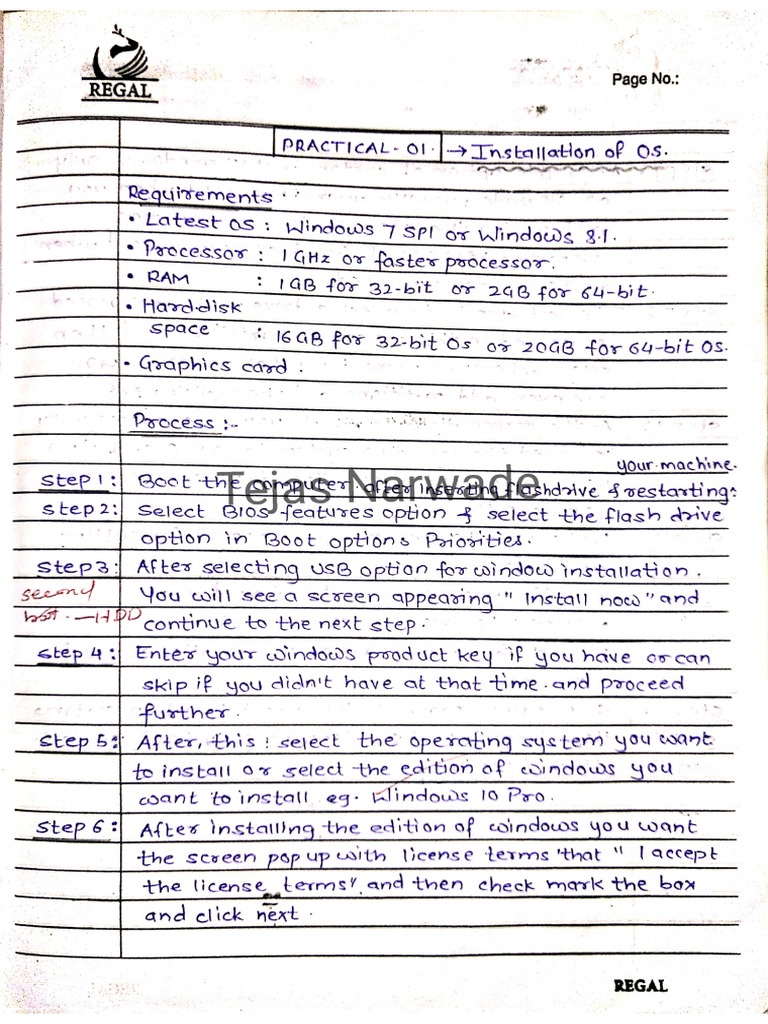 REGAL
Page No.:
PRACTICAL - 01. → Installation of O.S.
Requirements
• Latest OS : Windows 7 SP1 or Windows 8.1.
• Processor : 1 GHz or faster processor.
• RAM : 1GB for 32-bit or 2GB for 64-bit.
• Hard disk
space : 16GB for 32-bit Os or 20GB for 64-bit Os.
• Graphics card .
Process :-
your machine.
Step 1: Boot the computer after inserting flashdrive & restarting
Tejas Narwade
Step 2: Select BIOS features option & select the flash drive
option in Boot options Priorities.
Step 3: After selecting USB option for window installation.
second
You will see a screen appearing " Install now" and
HDD
continue to the next step.
Step 4: Enter your windows product key if you have or can
skip if you didn't have at that time. and proceed
further.
Step 5: After, this : select the operating system you want
to install or select the edition of windows you
want to install eg. Windows 10 Pro.
Step 6: After installing the edition of windows you want
the screen pop up with license terms 'that " I accept
the license terms" and then check mark the box
and click next.
REGAL